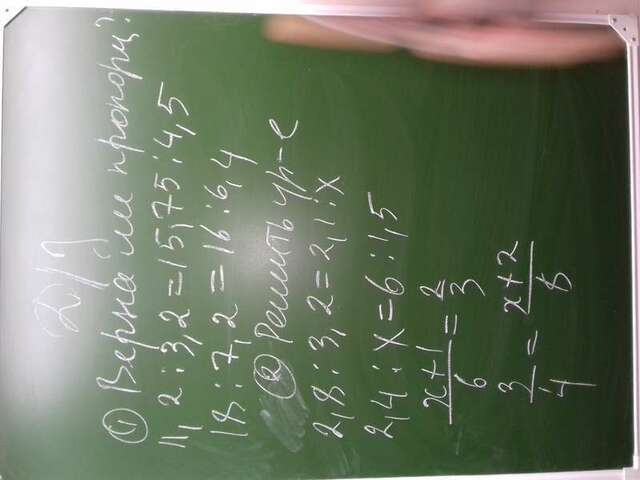 Д/З
① Верна ли пропорц?
11,2 : 3,2 = 15,75 : 4,5
18 : 7,2 = 16 : 6,4
② Решить ур-е
2,8 : 3,2 = 2,1 : x
2,4 : x = 6 : 1,5
x+1/6 = 2/3
3/4 = x+2/8